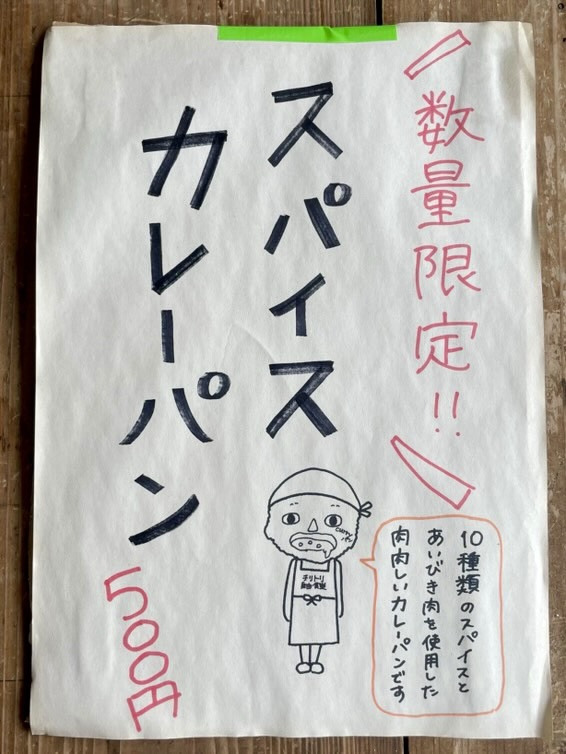 数量限定!!
スパイス
カレーパン
500円
10種類のスパイスと
あいびき肉を使用した
肉肉しいカレーパンです
チリトリ